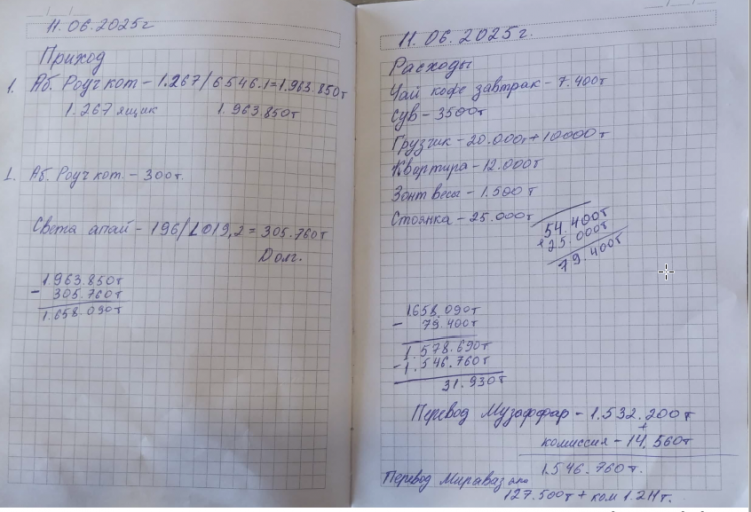 11.06.2025г
Приход
1. Аб. Родчкот - 1.267/6546.1=1.963.850т
1.267 ящик 1.963.850т
1. Аб. Родчкот. - 300т.
Света апай - 196/1019,2 = 305.760т
Долг.
1.963.850т
- 305.760т
1.658.090т
11.06.2025г.
Расходы
Чай кофе завтрак - 7.400т
Сув - 3500т
Грузчик - 20.000т+10000т
Квортира - 12.000т
Зонт весы - 1.500т
Стоянка - 25.000т
54.400т
+25.000т
79.400т
1.658.090т
- 79.400т
1.578.690т
- 1.546.760т
31.930т
Перевод Музаффар - 1.532.200т
+
комиссия - 14.560т
1.546.760т.
Перевод Мираваз
127.500т + ком 1.211т.